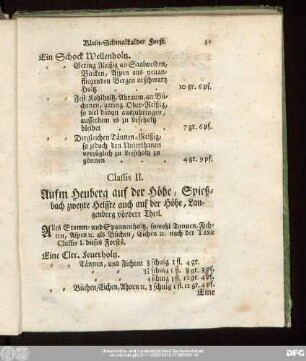 Klein-Schmalkalder Forst.
Ein Schock Wellenholtz.
Gering Reißig an Saalweiden,
Bircken, Aspen aus neuan-
fliegenden Bergen in schwartz
Holtz 10 gr. 6 pf.
Abraum, an Bü-
chenen, gering Ober-Reißig,
so viel davon auszubringen,
ausserdem es zu
bleibet 7 gr. 6 pf.
Dergleichen Tannen-Reißig,
so jedoch den Unterthanen
vorzüglich zu
gönnen 4 gr. 9 pf.
Classis II.
Aufm Heuberg auf der Höhe, Spieß-
bach zweyte Helffte auch auf der Höhe, Lau-
genberg vördere Theil.
Alles Stamm- und Spannenholtz, sowohl Tannen, Fich-
ten, Aspen ꝛc. als Büchen, Eichen ꝛc. nach der Taxe
Classis I. dieses Forsts.
Eine Clfr. Feuerholtz.
Tännen, und Fichten 3 schuig 1 fl. 4 gr.
3½ schuig 1 fl. 8 gr. 3 pf.
4 schuig 1 fl. 12 gr. 4 pf.
Büchen, Eichen, Ahorn ꝛc. 3 schuig 1 fl. 12 gr. 4 pf.
Eine